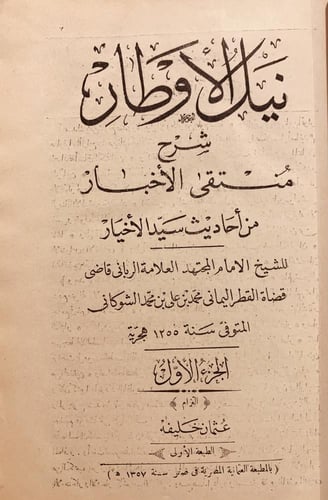 نيل الأوطار
شرح
منتقى الأخبار
من أحاديث سيد الأخيار
للشيخ الامام المجتهد العلامة الربانى قاضى
قضاة القطر اليمانى محمد بن على بن محمد الشوكانى
المتوفى سنة ١٢٥٥ هجرية
الجزء الأول
التزام
عثمان خليفه
الطبعة الأولى
(بالمطبعة العثمانية المصرية فى صفر سنة ١٣٥٧ ه‍)